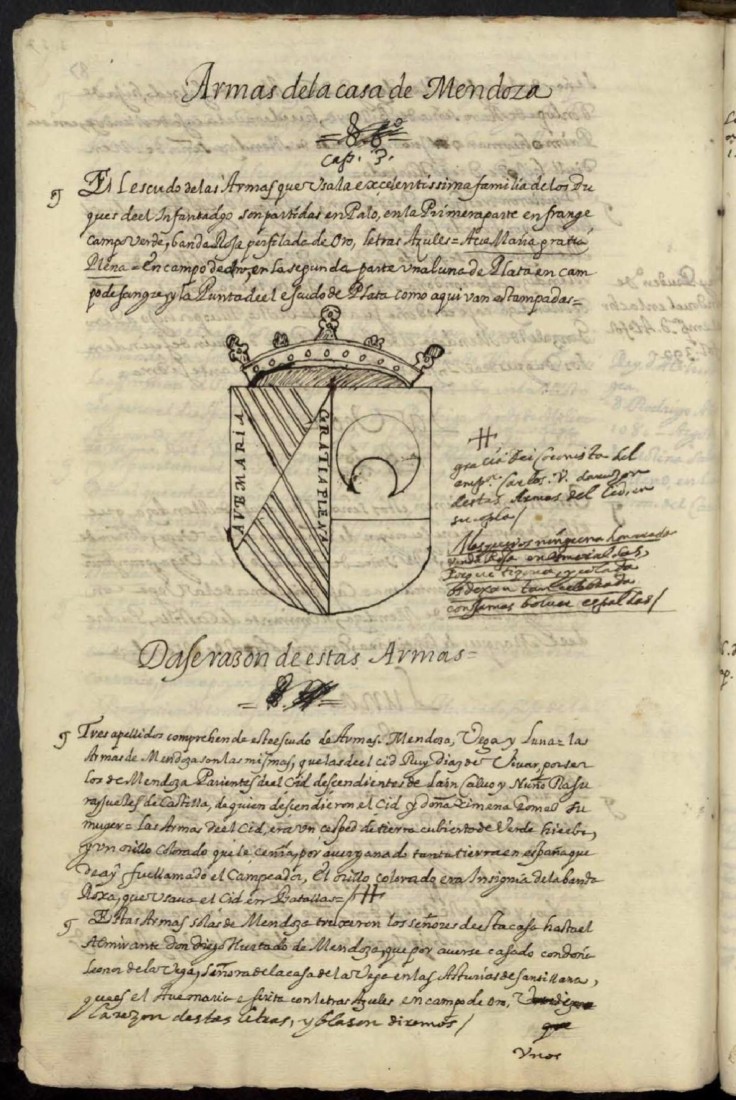 Armas de la casa de Mendoza
Cap. 3.
El escudo de las Armas que Usa la excelentissima familia de los Du
ques de el Infantadgo son partidas en Palo, en la Primera parte en frange
campo Verde, banda Roja perfilada de Oro, letras Azules = Aue Maria gratia
Plena = En campo de oro, en la segunda parte Una luna de Plata en cam
po de sangre, y la Punta de el escudo de Plata como aqui van estampadas =
AVE MARIA
GRATIA PLENA
gracia Dei coronista del
emp.r Carlos. V. da razon
destas Armas del Cid, en
su copla /
Mas
Vanda Roja en
Porque tizona, y colada
con jamas boluer espaldas /
Dase razon de estas Armas =
Tres apellidos comprehende este escudo de Armas: Mendoza, Vega y Luna = las
Armas de Mendoza son las mismas, que las de el cid Ruy Diaz de Viuar, por ser
los de Mendoza Parientes de el Cid descendientes de Lain Caluo y Nuño Rasu
ra Jueces de Castilla, de quien descendieron el Cid y doña Ximena Gomez su
muger = las Armas de el Cid, era Un cesped de tierra cubierto de Verde hierba,
y Un orillo Colorado que le ceñia, por auer ganado tanta tierra en españa que
de ay fue llamado el Campeador, El orillo colorado era Insignia de la banda
Roxa, que Usaua el Cid en Batallas = /
Estas Armas solas de Mendoza truxeron los señores de esta casa hasta el
Almirante don diego Hurtado de Mendoza, que por auerse casado con doña
Leonor de la Vega, Señora de la casa de la Vega en las Asturias de Santillana,
que es el Aue maria escrita con letras Azules en campo de oro,
la razon destas letras, y blason diremos /
Vnos